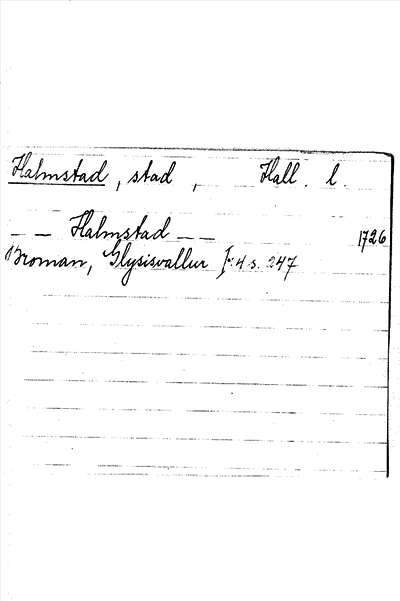 Halmstad, stad, Hall. l.
— — Halmstad — — 1726
Broman, Glysisvallur I: 4 s. 247